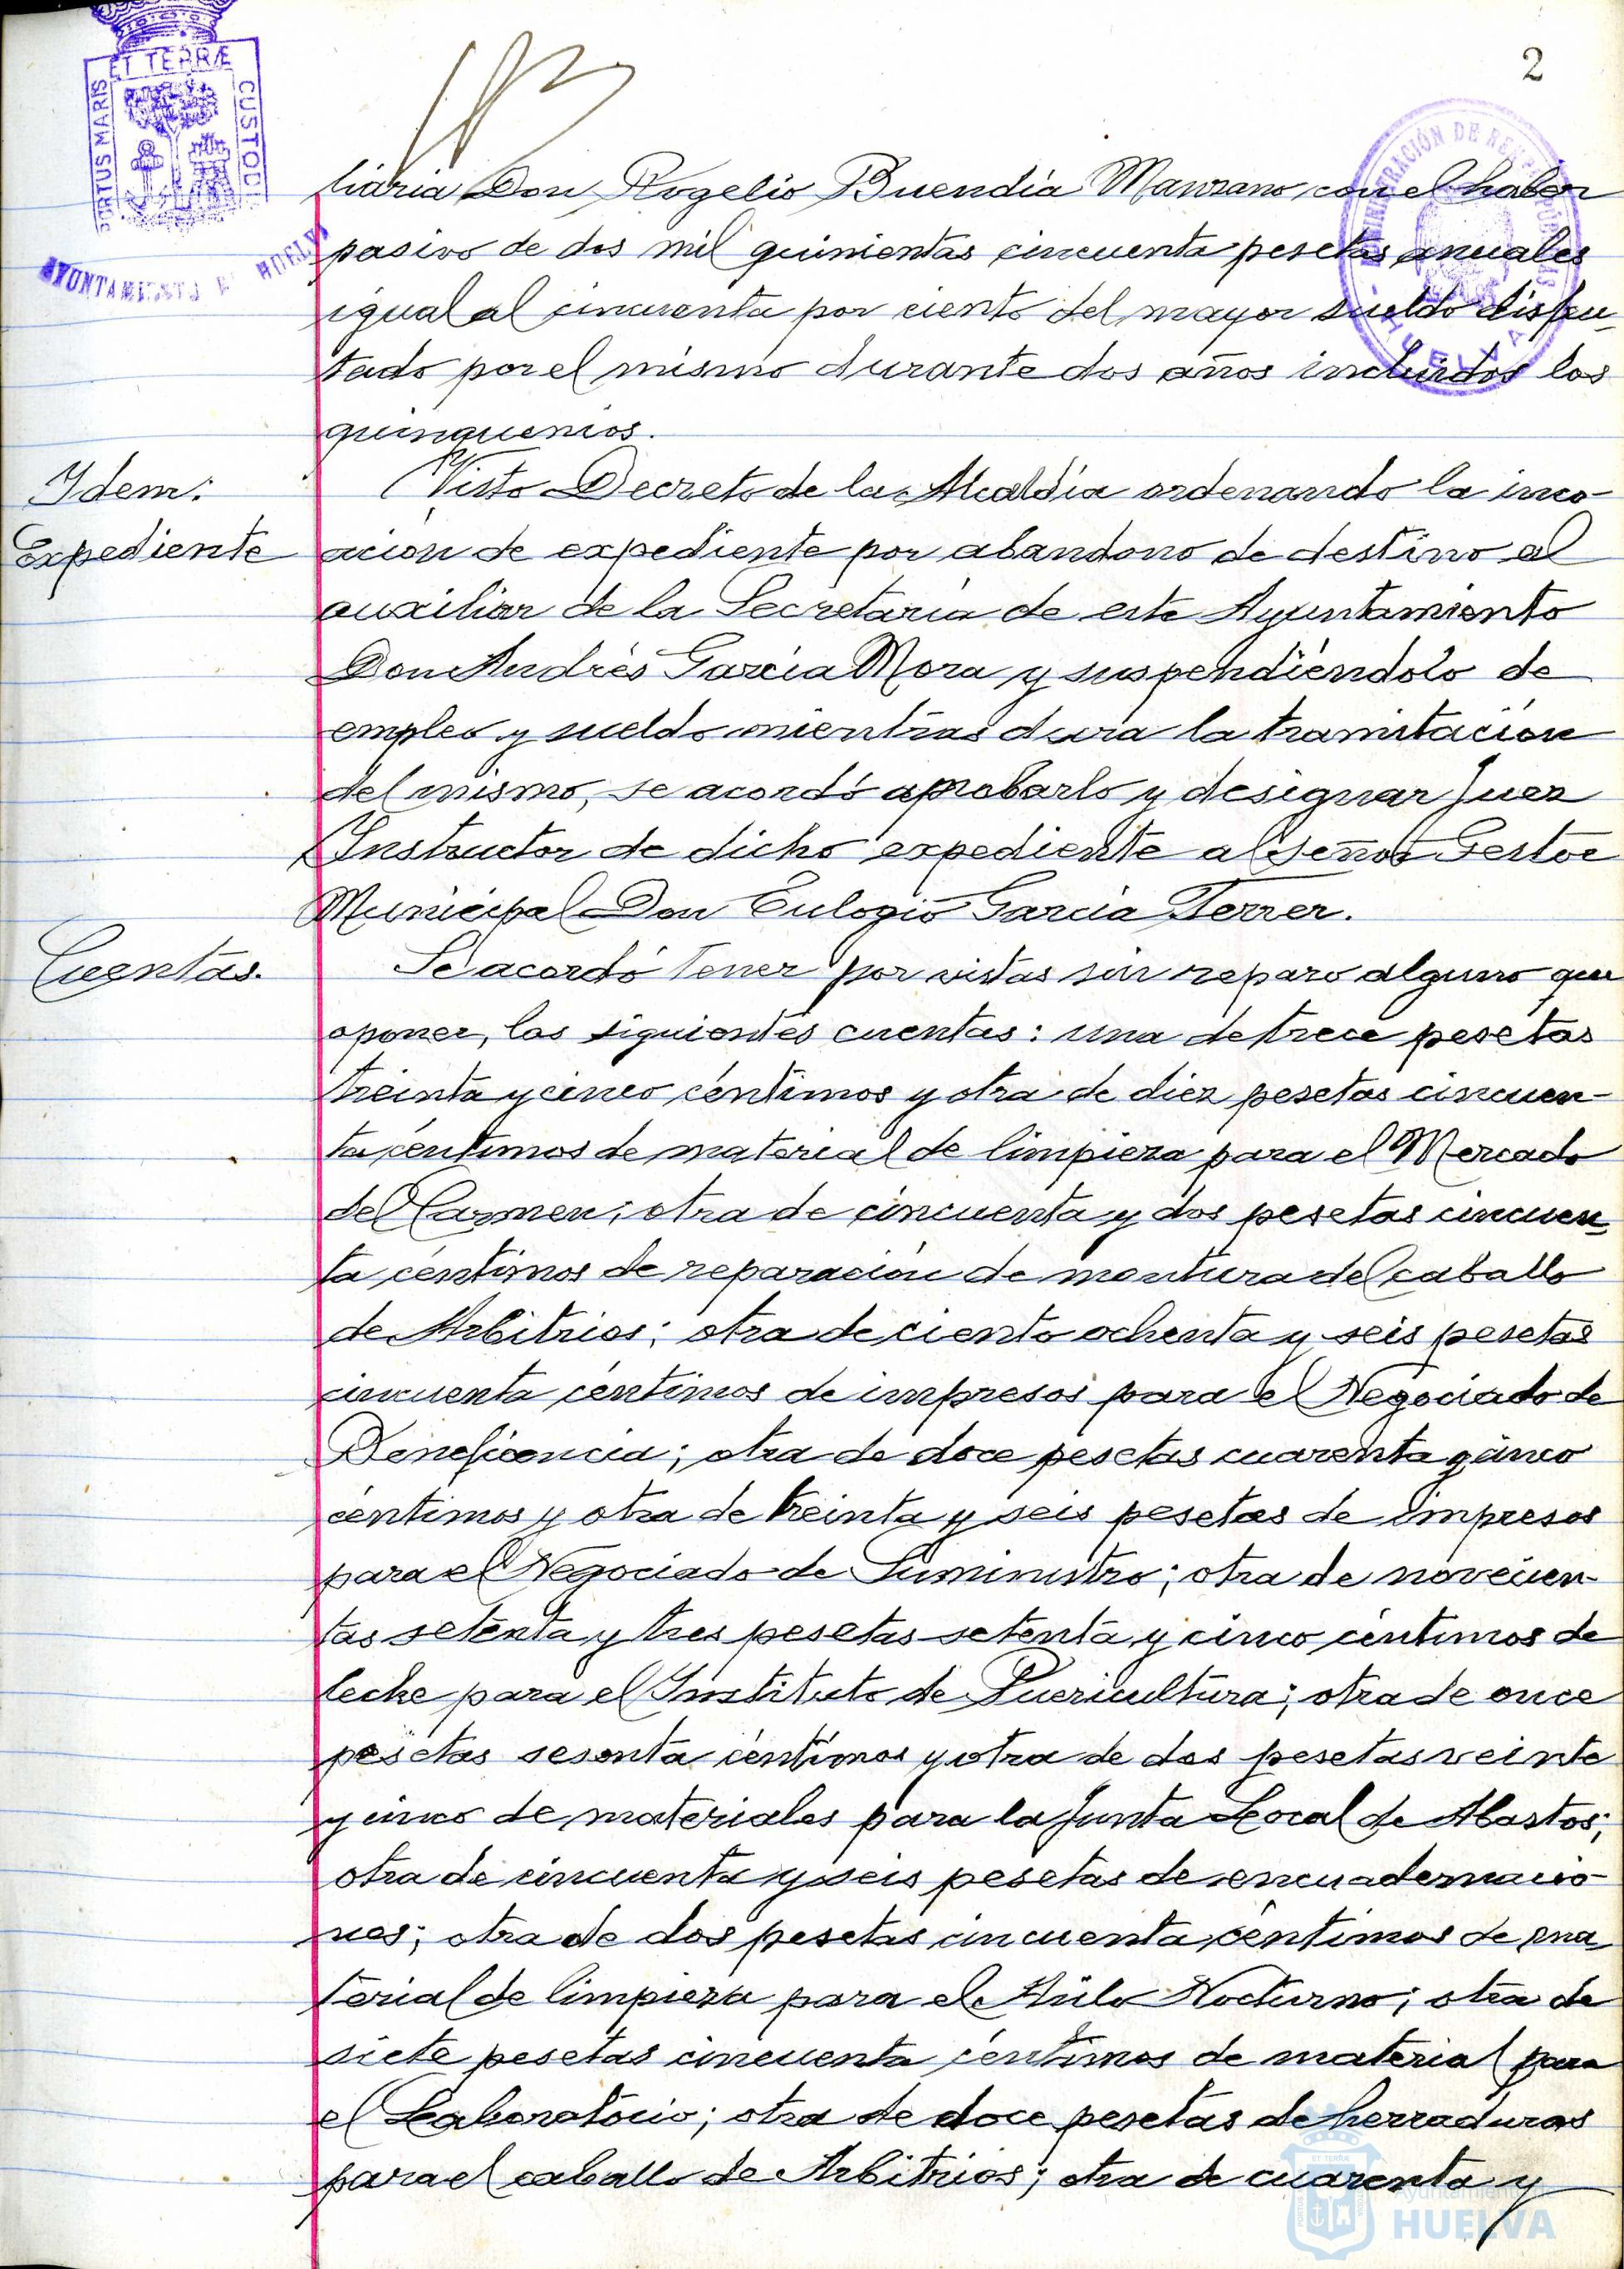 2
PORTUS MARIS ET TERRÆ CUSTODIA
AYUNTAMIENTO DE HUELVA
ADMINISTRACIÓN DE
HUELVA
liaria Don Rogelio Buendía Manzano con el haber
pasivo de dos mil quinientas cincuenta pesetas anuales
igual al cincuenta por ciento del mayor sueldo disfru-
tado por el mismo durante dos años incluidos los
quinquenios.
Idem:
Expediente
Visto Decreto de la Alcaldía ordenando la inco-
ación de expediente por abandono de destino al
auxiliar de la Secretaría de este Ayuntamiento
Don Andrés García Mora y suspendiéndolo de
empleo y sueldo mientras dura la tramitación
del mismo, se acordó aprobarlo y designar Juez
Instructor de dicho expediente al señor Gestor
Municipal Don Eulogio García Ferrer.
Cuentas.
Se acordó tener por vistas sin reparo alguno que
oponer, las siguientes cuentas: una de trece pesetas
treinta y cinco céntimos y otra de diez pesetas cincuen-
ta céntimos de material de limpieza para el Mercado
del Carmen; otra de cincuenta y dos pesetas cincuen-
ta céntimos de reparación de montura del caballo
de Arbitrios; otra de ciento ochenta y seis pesetas
cincuenta céntimos de impresos para el Negociado de
Beneficencia; otra de doce pesetas cuarenta y cinco
céntimos y otra de treinta y seis pesetas de impresos
para el Negociado de Suministro; otra de novecien-
tas setenta y tres pesetas setenta y cinco céntimos de
leche para el Instituto de Puericultura; otra de once
pesetas sesenta céntimos y otra de dos pesetas veinte
y cinco de materiales para la Junta Local de Abastos;
otra de cincuenta y seis pesetas de encuadernacio-
nes; otra de dos pesetas cincuenta céntimos de ma-
terial de limpieza para el Asilo Nocturno; otra de
siete pesetas cincuenta céntimos de material para
el Laboratorio; otra de doce pesetas de herraduras
para el caballo de Arbitrios; otra de cuarenta y
Ayuntamiento de
HUELVA